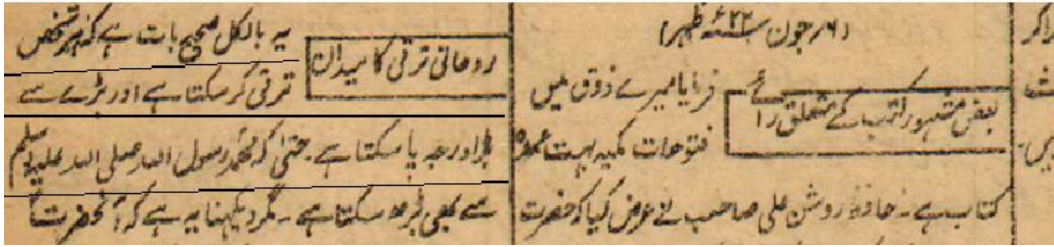 جون ۲۲ ظہر)
بعض مشہور کتب کے متعلق رائے
فرمایا میرے ذوق میں
فتوحات مکیہ بہت عمدہ
کتاب ہے۔ حافظ روشن علی صاحب نے عرض کیا کہ حضرت
یہ بالکل صحیح بات ہے کہ ہر شخص
روحانی ترقی کا میدان
ترقی کر سکتا ہے اور بڑے سے
بڑا درجہ پا سکتا ہے۔ حتٰی کہ محمد رسول اللہ صلی اللہ علیہ وسلم
سے بھی بڑھ سکتا ہے۔ مگر دیکھنا یہ ہے کہ آنحضرت